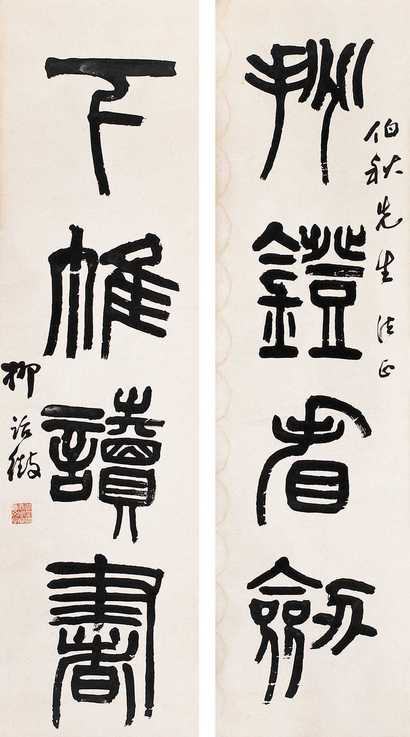 伯秋先生法正
挑鐙看劒
下帷讀書
柳詒徵